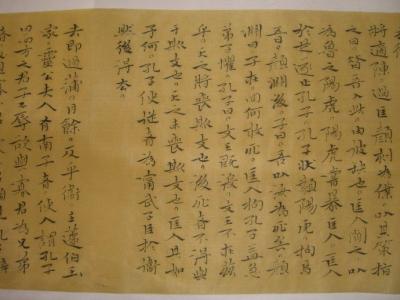 將適陳。過匡。顏刻為僕。以其策指
之曰。昔吾入此。由彼缺也。匡人聞之。以
為魯之陽虎。陽虎嘗暴匡人。匡人
於是遂止孔子。孔子狀類陽虎。拘焉
五日。顏淵後。子曰。吾以汝為死矣。顏
淵曰。子在。回何敢死。匡人拘孔子益急。
弟子懼。孔子曰。文王既沒。文不在茲
乎。天之將喪斯文也。後死者不得與
于斯文也。天之未喪斯文也。匡人其如
予何。孔子使從者為甯武子臣於衛。
然後得去。
去即過蒲。月餘。反乎衛。主蘧伯玉
家。靈公夫人有南子者。使人謂孔子
曰。四方之君子不辱欲與寡君為兄弟